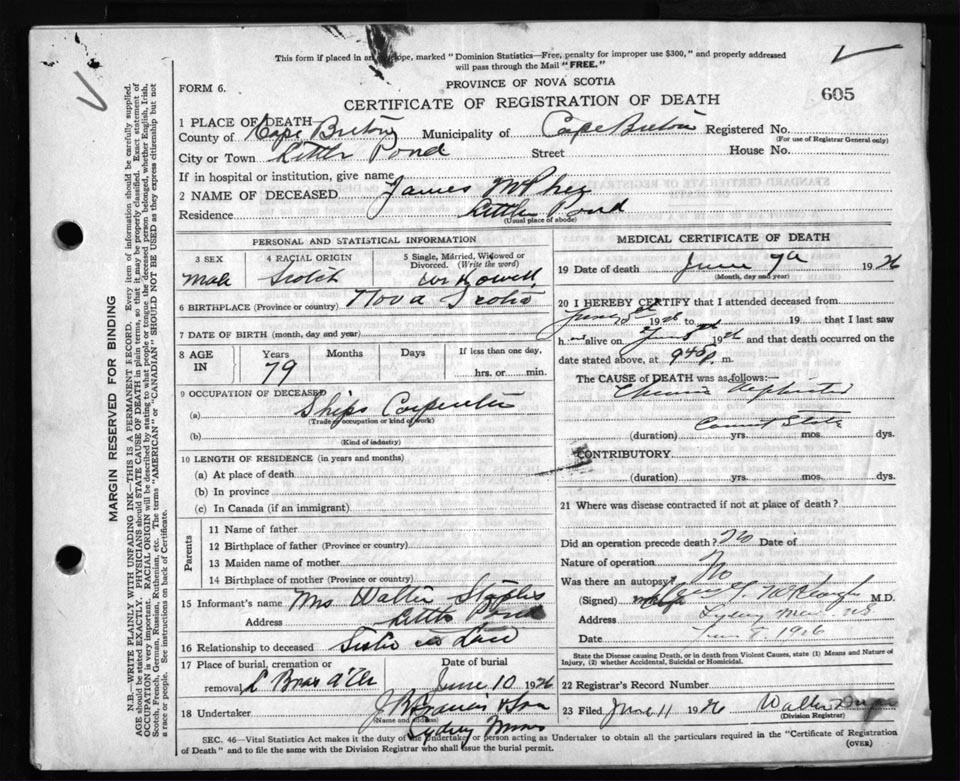 This form if placed in an envelope, marked "Dominion Statistics—Free, penalty for improper use $300," and properly addressed
will pass through the Mail "FREE."
FORM 6.
PROVINCE OF NOVA SCOTIA
CERTIFICATE OF REGISTRATION OF DEATH
605
1 PLACE OF DEATH
County of Cape Breton Municipality of Cape Breton Registered No.
(For use of Registrar General only)
City or Town Little Pond Street House No.
If in hospital or institution, give name
2 NAME OF DECEASED James McPhee
Residence Little Pond
(Usual place of abode)
PERSONAL AND STATISTICAL INFORMATION
3 SEX 4 RACIAL ORIGIN 5 Single, Married, Widowed or Divorced. (Write the word)
Male Scotch Widower
6 BIRTHPLACE (Province or Country) Nova Scotia
7 DATE OF BIRTH (month, day and year)
8 AGE IN Years Months Days If less than one day, hrs. or min.
79
9 OCCUPATION OF DECEASED
(a) Ships Carpenter
(Trade, occupation or kind of work)
(b)
(Kind of industry)
10 LENGTH OF RESIDENCE (in years and months)
(a) At place of death
(b) In province
(c) In Canada (if an immigrant)
Parents
11 Name of father
12 Birthplace of father (Province or country)
13 Maiden name of mother
14 Birthplace of mother (Province or country)
15 Informant's name Mrs Walter Staples
Address Little Pond
16 Relationship to deceased Sister in Law
17 Place of burial, cremation or removal Date of burial
L Bras d'Or June 10 1926
18 Undertaker J B Francis & Son
(Name and address)
Sydney Mines
MEDICAL CERTIFICATE OF DEATH
19 Date of death June 1926
(Month, day and year)
20 I HEREBY CERTIFY that I attended deceased from
1926 to 19 that I last saw
h alive on 1926 and that death occurred on the
date stated above, at 940 p. m.
The CAUSE OF DEATH was as follows:
Chronic Nephritis
(duration) yrs. mos. dys.
CONTRIBUTORY
(duration) yrs. mos. dys.
21 Where was disease contracted if not at place of death?
Did an operation precede death? No Date of
Nature of operation
Was there an autopsy? No
(Signed) M.D.
Address Sydney Mines NS
Date June 1926
State the Disease causing Death, or in death from Violent Causes, state (1) Means and Nature of
Injury, (2) whether Accidental, Suicidal or Homicidal.
22 Registrar's Record Number
23 Filed June 11 1926 Walter
(Division Registrar)
SEC. 46—Vital Statistics Act makes it the duty of the Undertaker or person acting as Undertaker to obtain all the particulars required in the "Certificate of Registration
of Death" and to file the same with the Division Registrar who shall issue the burial permit. (OVER)
MARGIN RESERVED FOR BINDING
N.B.—WRITE PLAINLY, WITH UNFADING INK—THIS IS A PERMANENT RECORD. Every item of information should be carefully supplied.
AGE should be stated EXACTLY. PHYSICIANS should STATE CAUSE OF DEATH in plain terms, so that it may be properly classified. Exact statement of
OCCUPATION is very important. RACIAL ORIGIN will be described by stating to what people or tongue the deceased person belonged, whether English, Irish,
Scotch, French, German, Russian, Ruthenian, etc. The terms "AMERICAN" or "CANADIAN" SHOULD NOT BE USED as they express citizenship but not
a race or people. See instructions on back of Certificate.